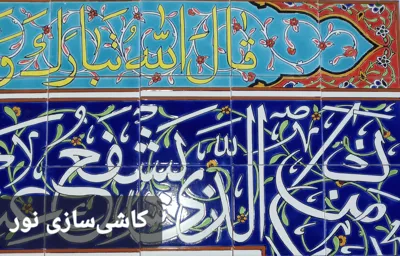 قال الله تبارک و
من ذا الذی یشفع
کاشی‌سازی نور